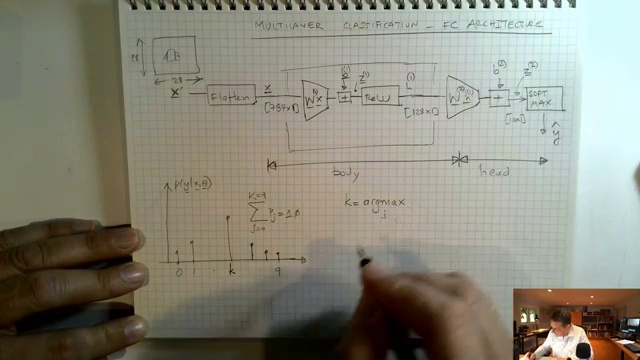 MULTILAYER CLASSIFICATION - FC ARCHITECTURE
28
28
X
Flatten
x
[784x1]
W(1)x
b(1)
+
z(1)
ReLU
h(1)
[128x1]
W(2)h(1)
b(2)
+
z(2)
[10x1]
SOFT MAX
ŷ
body
head
p(y|x,θ)
K=9
∑ Pj = 1.0
j=0
k = argmax
j
0 1 . k 9